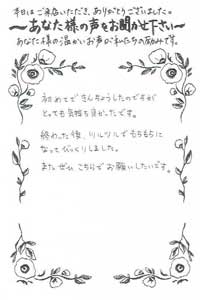 本日はご来店いただき、ありがとうございました。
～あなた様の声をお聞かせ下さい～
あなた様の温かいお声が私たちの励みです。
初めてで きんちょうしたのですが
とっても気持ち良かったです。
終わった後、ツルツルでもちもちに
なってびっくりしました。
また ぜひ、こちらでお願いしたいです。